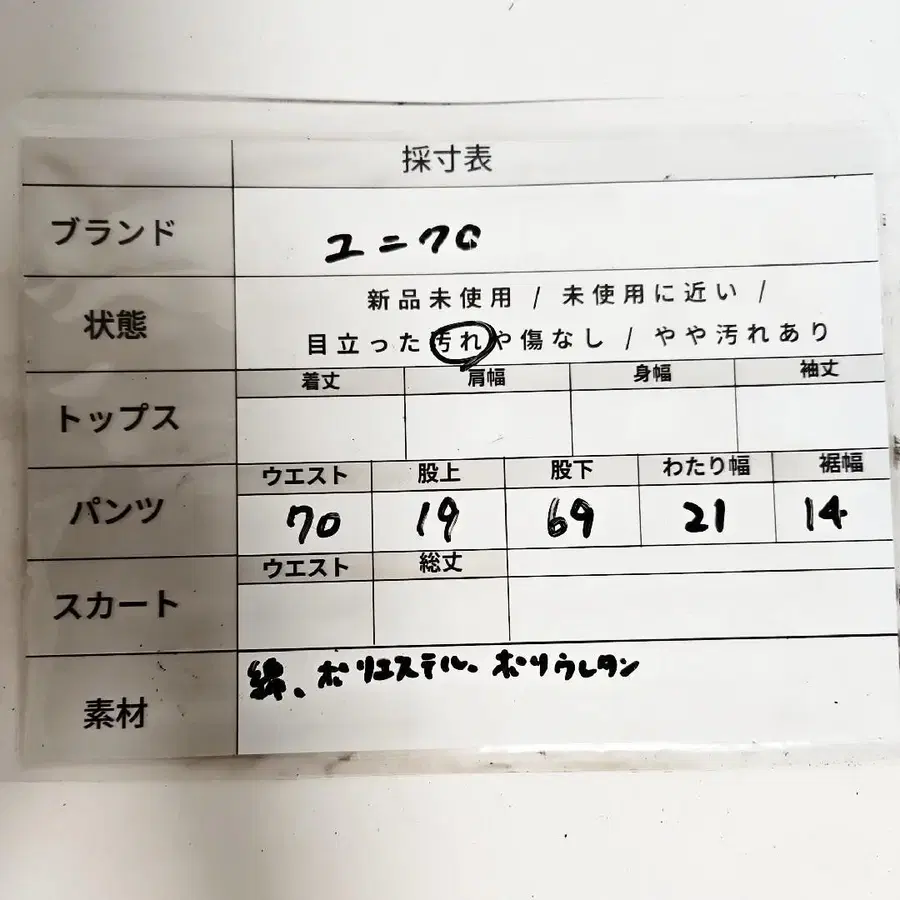 採寸表
ブランド ユニクロ
状態 新品未使用 / 未使用に近い /
目立った汚れや傷なし / やや汚れあり
着丈 肩幅 身幅 袖丈
トップス
ウエスト 股上 股下 わたり幅 裾幅
パンツ 70 19 69 21 14
ウエスト 総丈
スカート
素材 綿、ポリエステル、ポリウレタン